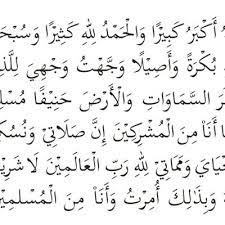 أَكْبَرُ كَبِيرًا وَالْحَمْدُ لِلّٰهِ كَثِيْرًا وَسُبْحَا
بُكْرَةً وَأَصِيْلًا وَجَّهْتُ وَجْهِيَ لِلَّذِ
السَّمَاوَاتِ وَالْأَرْضَ حَنِيْفًا مُسْلِ
أَنَا مِنَ الْمُشْرِكِيْنَ إِنَّ صَلَاتِيْ وَنُسُكِ
حْيَايَ وَمَمَاتِيْ لِلّٰهِ رَبِّ الْعَالَمِيْنَ لَا شَرِيْ
وَبِذٰلِكَ أُمِرْتُ وَأَنَا مِنَ الْمُسْلِمِيْ